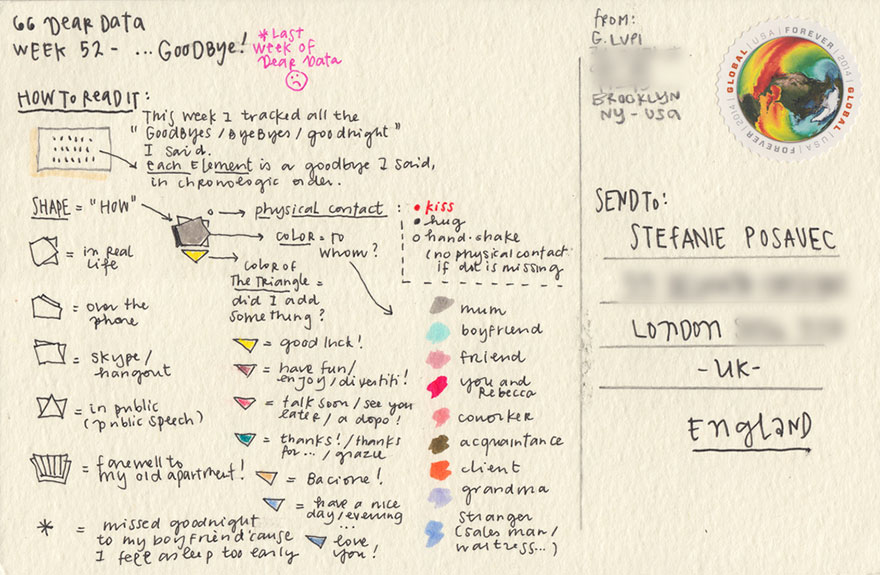 66 DEAR DATA
WEEK 52 - ... GOODBYE!
* LAST
WEEK OF
DEAR DATA
HOW TO READ IT:
This week I tracked all the
"GOODBYES / BYEBYES / goodnight"
I said.
each element is a goodbye I said,
in chronologic order.
SHAPE = "HOW"
= in real
life
= over the
phone
= skype/
hangout
= in public
(public speech)
= farewell to
my old apartment!
* = missed goodnight
to my boyfriend 'cause
I fell asleep too early
physical contact :
• kiss
• hug
o hand-shake
(no physical contact
if dot is missing
COLOR = TO
WHOM?
COLOR OF
THE TRIANGLE =
did I add
something?
= good luck!
= have fun/
enjoy/divertiti!
= talk soon/see you
later/a dopo!
= thanks!/thanks
for.../grazie
= Bacione!
= have a nice
day/evening
...
= love
you!
mum
boyfriend
friend
you and
Rebecca
coworker
acquaintance
client
grandma
stranger
(sales man/
waitress...)
FROM:
G. LUPI
BROOKLYN
NY - USA
GLOBAL | USA | FOREVER | 2014 | GLOBAL | USA | FOREVER | 2014 |
SEND TO:
STEFANIE POSAVEC
LONDON
- UK -
ENGLAND